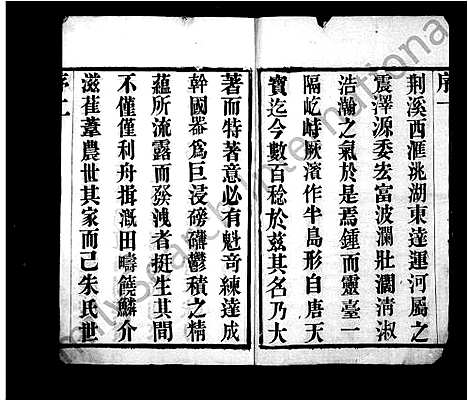 序一
荆溪西滙洮湖東達運河屬之
震澤源委宏富波瀾壯濶淸淑
浩瀚之氣於是焉鍾而靈臺一
隔屹峙厥濱作半島形自唐天
寶迄今數百稔於茲其名乃大
著而特著意必有魁竒練達成
幹國器爲巨浸磅礴鬱積之精
蘊所流露而發洩者挺生其間
不僅僅利舟揖漑田疇饒鱗介
滋萑葦農世其家而已朱氏世
序二